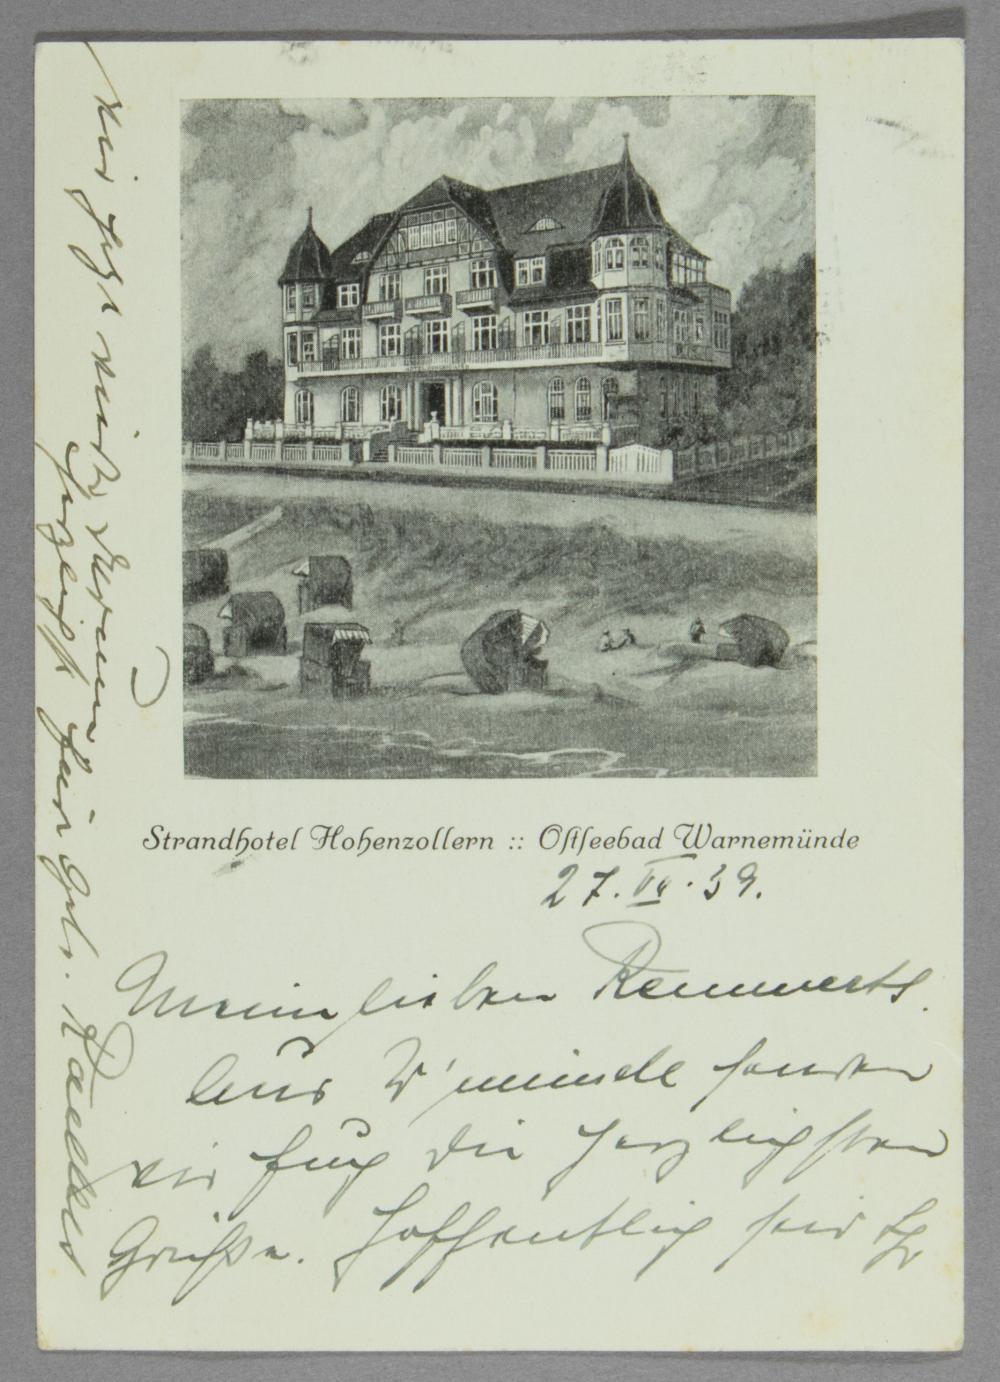 Strandhotel Hohenzollern :: Ostseebad Warnemünde
27. VI. 39.
Meine lieben Remmerts.
Aus W'münde senden
wir Euch die herzlichsten
Grüße. Hoffentlich seid Ihr
wir jetzt
herzlichst